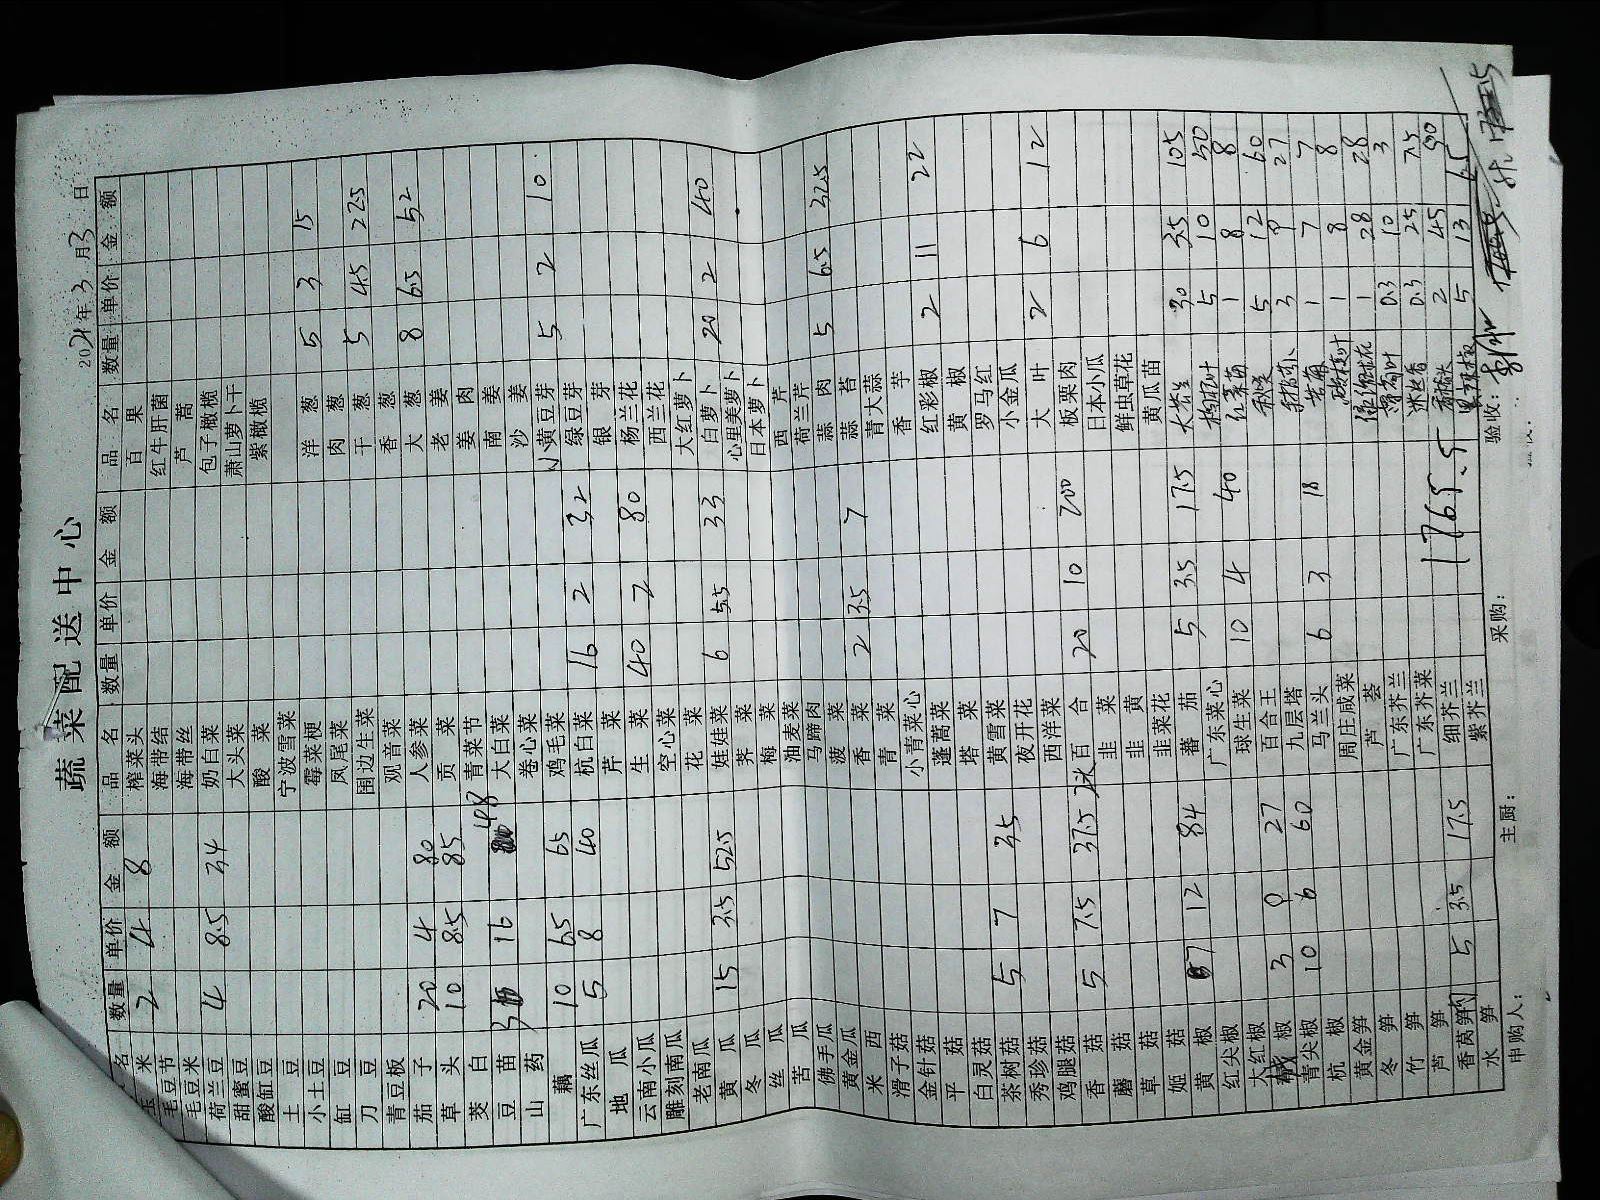 蔬菜配送中心
2021年3月3日
品名 数量 单价 金额 品名 数量 单价 金额 品名 数量 单价 金额
玉米 2 4 8 榨菜头 百果
毛豆节 海带结 红牛肝菌
毛豆米 海带丝 芦蒿
荷兰豆 4 8.5 34 奶白菜 包子橄榄
甜蜜豆 大头菜 萧山萝卜干
酸缸豆 酸菜 紫橄榄
土豆 宁波雪菜
小土豆 霉菜梗 洋葱 5 3 15
缸豆 凤尾菜 肉葱
刀豆 围边生菜 干葱 5 4.5 22.5
青豆板 观音菜 香葱
茄子 20 4 80 人参菜 大葱 8 6.5 52
草头 10 8.5 85 贡菜 老姜
茭白 青菜节 姜肉
豆苗 3 16 48 大白菜 南姜
山药 卷心菜 沙姜
藕 10 6.5 65 鸡毛菜 小黄豆芽 5 2 10
广东丝瓜 5 8 40 杭白菜 16 2 32 绿豆芽
地瓜 芹菜 银芽
云南小瓜 生菜 40 2 80 杨兰花
雕刻南瓜 空心菜 西兰花
老南瓜 花菜 大红萝卜
黄瓜 15 3.5 52.5 娃娃菜 6 5.5 33 白萝卜 20 2 40
冬瓜 荠菜 心里美萝卜
丝瓜 梅菜 日本萝卜
苦瓜 油麦菜 西芹
佛手瓜 马蹄肉 荷兰芹
黄金瓜 菠菜 蒜肉 5 6.5 32.5
米西 香菜 2 3.5 7 蒜苔
滑子菇 青菜 青大蒜
金针菇 小青菜心 香芋
平菇 蓬蒿菜 红彩椒 2 11 22
白灵菇 塔菜 黄椒
茶树菇 5 7 35 黄雪菜 罗马红
秀珍菇 夜开花 小金瓜
鸡腿菇 西洋菜 大叶 2 6 12
香菇 5 7.5 37.5 百合 20 10 200 板栗肉
蘑菇 韭菜 日本小瓜
草菇 韭黄 鲜虫草花
姬菇 韭菜花 黄瓜苗
黄椒 7 12 84 蕃茄 5 3.5 17.5 30 3.5 105
红尖椒 广东菜心 枸杞叶 5 10 50
大红椒 球生菜 10 4 40 红菜苗 1 8 8
椒 3 9 27 百合王 秋葵 5 12 60
青尖椒 10 6 60 九层塔 3 9 27
杭椒 马兰头 6 3 18 苦菊 1 7 7
黄金笋 周庄咸菜 1 8 8
冬笋 芦荟 1 28 28
竹笋 广东芥兰 薄荷叶 0.3 10 3
芦笋 广东芥菜 迷迭香 0.3 25 7.5
香莴笋 5 3.5 17.5 细芥兰 2 45 90
水笋 紫芥兰 黑胡椒 5 13 65
1765.5
申购人： 主厨： 采购： 验收：